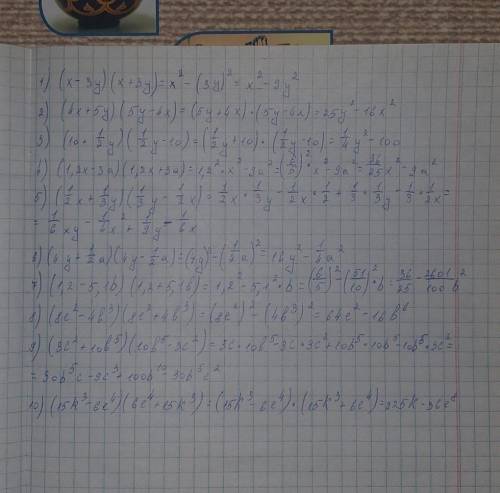 1) (x-3y)(x+3y)=x²-(3y)²=x²-9y²
2) (4x+5y)(5y-4x)=(5y+4x)·(5y-4x)=25y²-16x²
3) (10+1/2y)(1/2y-10)=(1/2y+10)·(1/2y-10)=1/4y²-100
4) (1,2x-3a)(1,2x+3a)=1,2²·x²-9a²=(6/5)²·x²-9a²=36/25x²-9a²
5) (1/2x+1/3y)(1/3y-1/2x)=1/2x·1/3y-1/2x·1/2+1/3·1/3y-1/3·1/2x=
=1/6xy-1/4x²+1/9y-1/6x
6) (4y+1/2a)(4y-1/2a)=(4y)²-(1/2a)²=16y²-1/4a²
7) (1,2-5,1b)(1,2+5,1b)=1,2²-5,1²·b=(6/5)²-(51/10)²·b=36/25-2601/100b²
8) (8c²-4b³)(8c²+4b³)=(8c²)²-(4b³)²=64c²-16b⁶
9) (3c²+10b⁵)(10b⁵-3c²)=3c·10b⁵-3c·3c²+10b⁵·10b⁵-10b⁵·3c²=
=30b⁵c-9c³+100b¹⁰-30b⁵c²
10) (15k³-6c⁴)(6c⁴+15k³)=(15k³-6c⁴)·(15k³+6c⁴)=225k-36c⁸